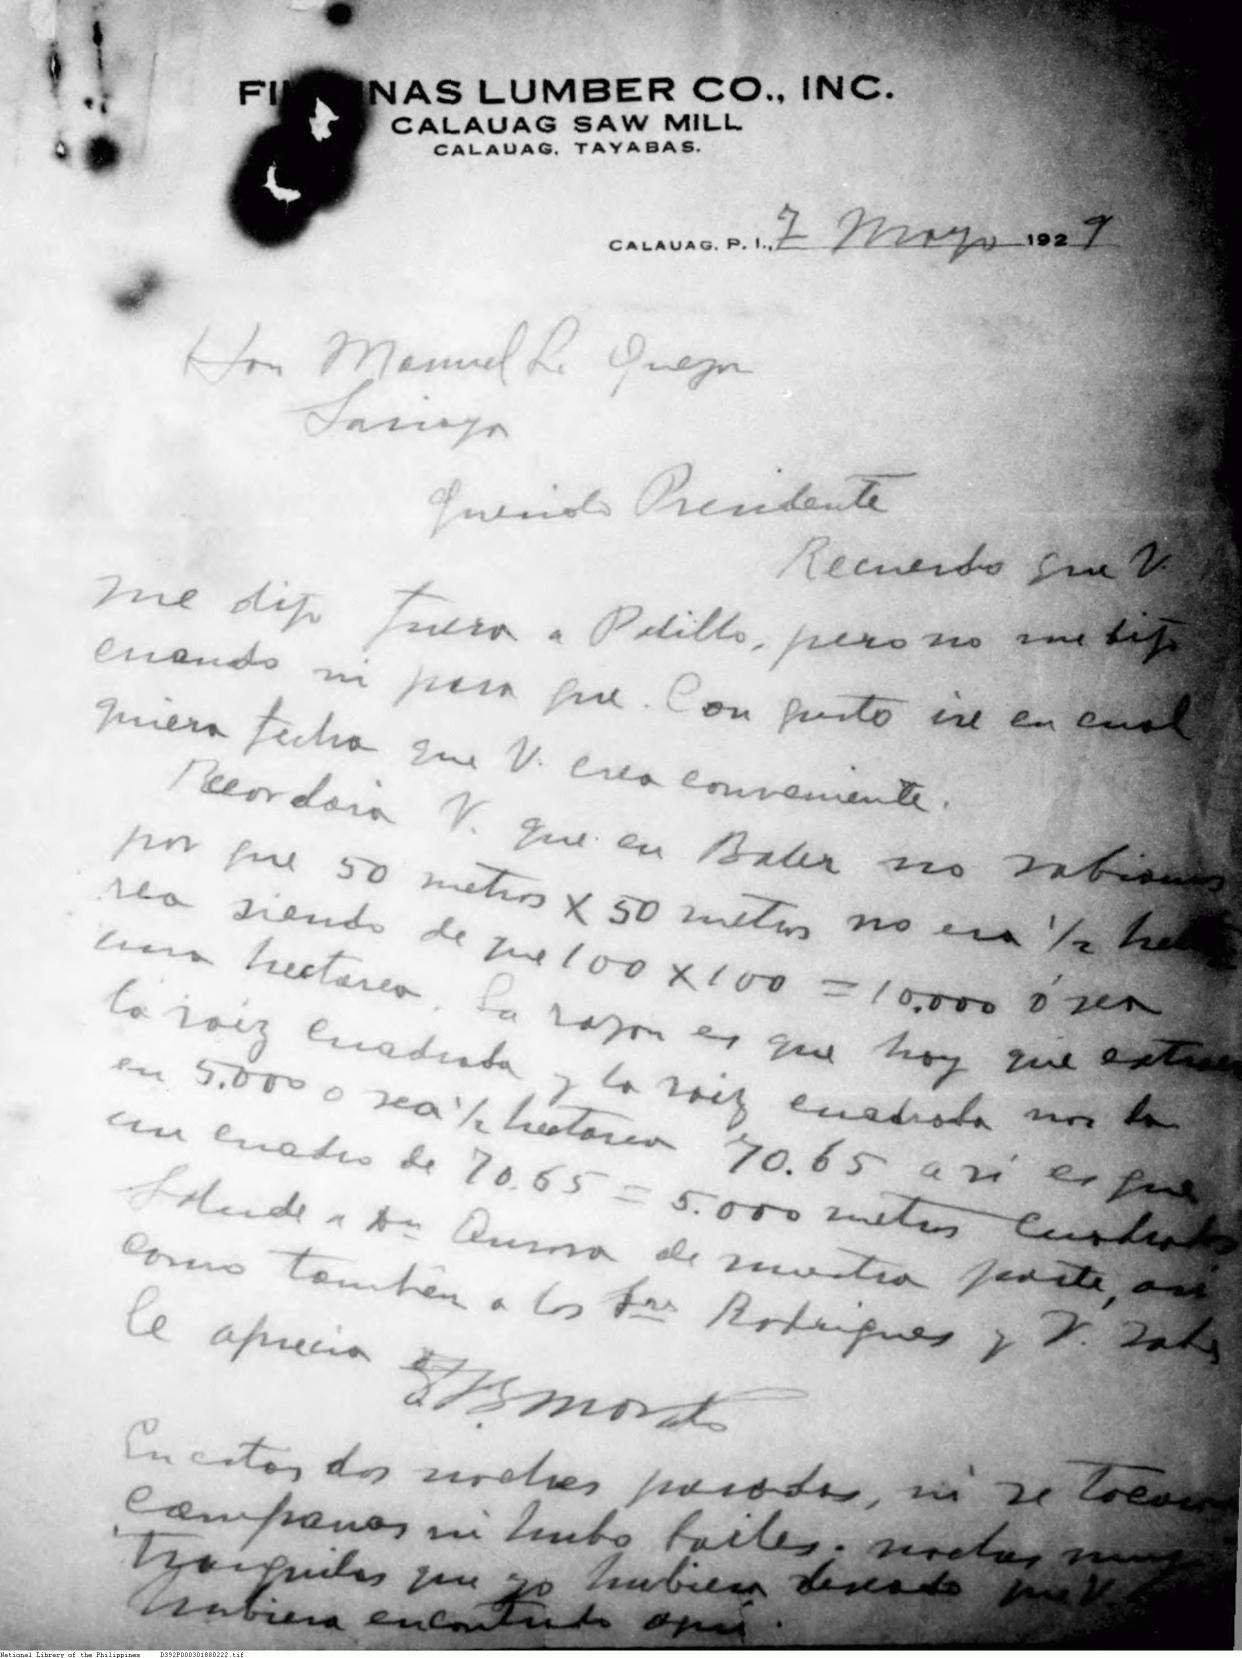 FI NAS LUMBER CO., INC.
CALAUAG SAW MILL
CALAUAG, TAYABAS.
CALAUAG, P. I., 7 Mayo 1929
Hon Manuel L. Quezon
Sariaya
Querido Presidente
Recuerdo que V.
me dijo fuera a Polillo, pero no me dijo
cuando ni para que. Con gusto ire en cual
quiera fecha que V. crea conveniente.
Recordara V. que en Baler no sabiamos
por que 50 metros X 50 metros no era 1/2 hecta
rea siendo de que 100 X 100 = 10.000 ó sea
una hectarea. La razon es que hay que extraer
la raiz cuadrada y la raiz cuadrada nos da
en 5.000 o sea 1/2 hectarea 70.65 asi es que
un cuadro de 70.65 = 5.000 metros cuadrados
Salude a Dña Aurora de nuestra parte, asi
como tambien a los Sres Rodrigues y V. sabe
le aprecia
Morato
En estas dos noches pasadas, ni se tocaron
campanas ni hubo bailes. noches muy
tranquilas que yo hubiera deseado que V.
hubiera encontrado aqui.
National Library of the Philippines D392P000301880222.tif